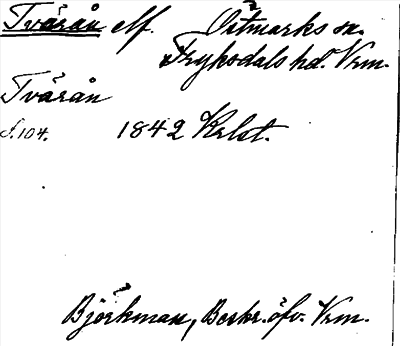 Tvärån elf. Vitmarks sn.
Fryksdals hd. Vrm.
Tvärån
S. 104. 1842 Krlst.
Björkman, Beskr. öfv. Vrm.